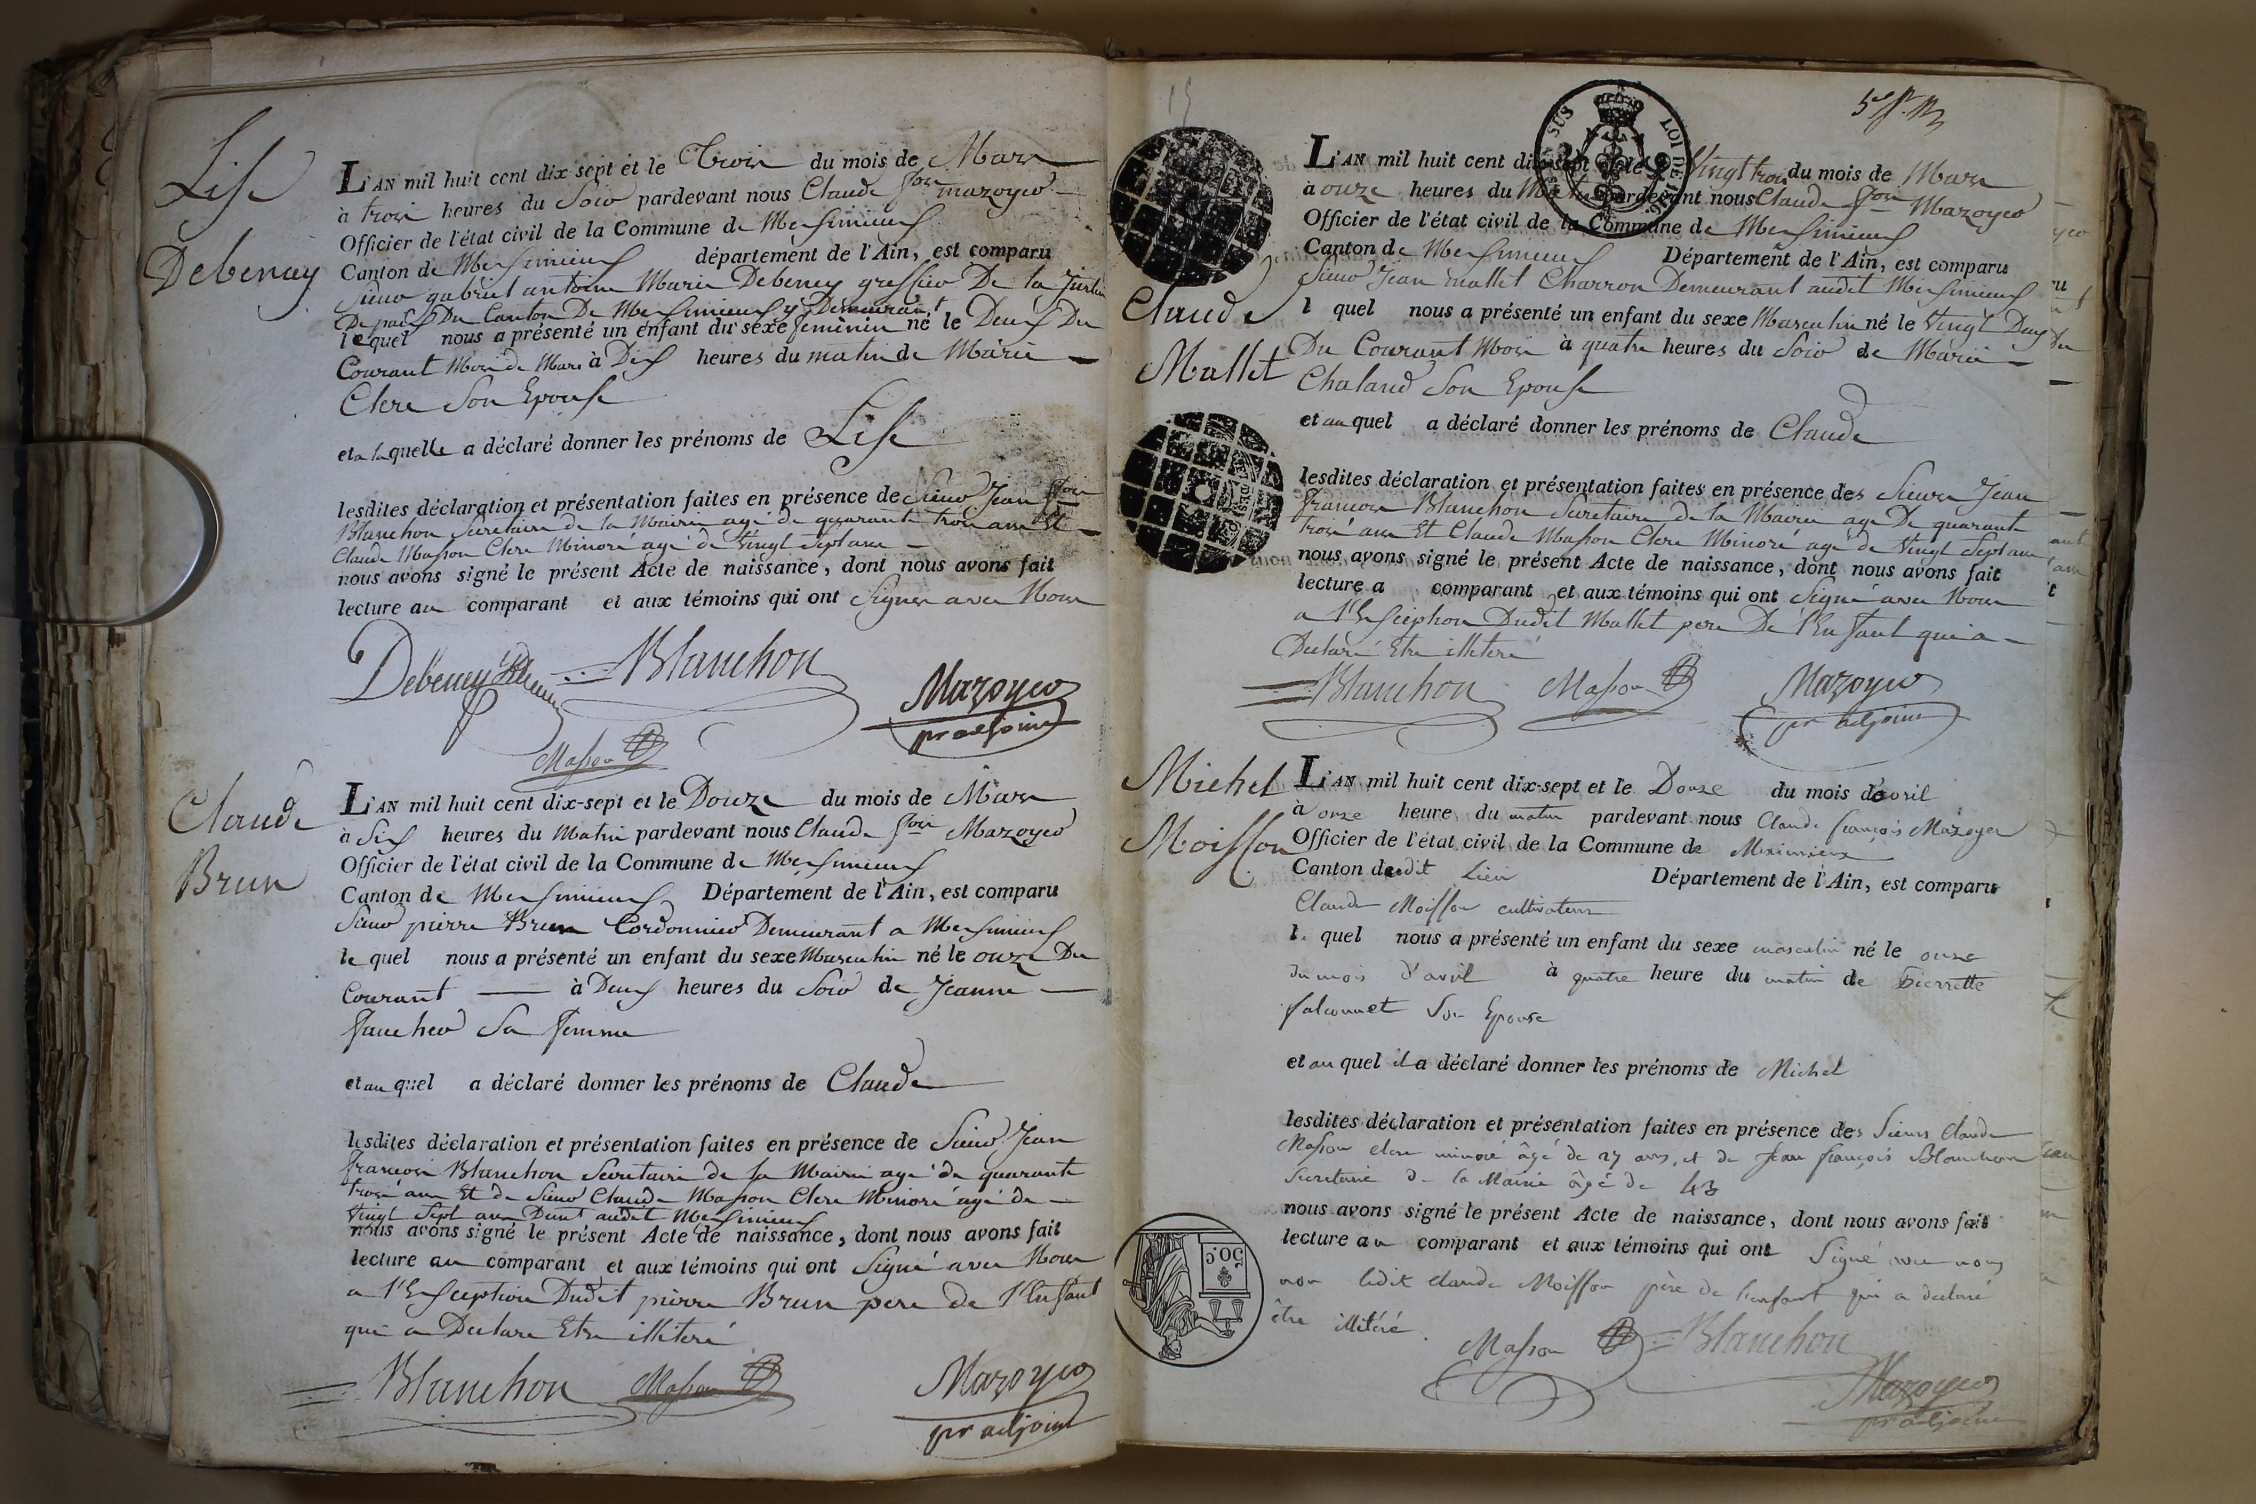 Lise
Debeney
L'AN mil huit cent dix-sept et le Trois du mois de Mars
à trois heures du Soir pardevant nous Claude fçois mazoyer
Officier de l'état civil de la Commune de Mexsimieux
Canton de Mexsimieux département de l'Ain, est comparu
Sieur gabriel antoine Marie Debeney greffier De la Justice
De paix Du Canton De Mexsimieux y Demeurant
lequel nous a présenté un enfant du sexe feminin né le Deux Du
Courant Mois de Mars à Dix heures du matin de Marie
Clere Son Epouse
et a laquelle a déclaré donner les prénoms de Lise
lesdites déclaration et présentation faites en présence de Sieur Jean fçois
Blanchon Secretaire de la Mairie agé de quarante trois ans Et
Claude Masson Clerc Minoré agé de vingt Sept ans
nous avons signé le présent Acte de naissance, dont nous avons fait
lecture au comparant et aux témoins qui ont Signer avec Nous
Debeney Blanchon
Mazoyer
pr adjoint
Masson
Claude
Brun
L'AN mil huit cent dix-sept et le Douze du mois de Mars
à Six heures du Matin pardevant nous Claude fçois Mazoyer
Officier de l'état civil de la Commune de Mexsimieux
Canton de Mexsimieux Département de l'Ain, est comparu
Sieur pierre Brun Cordonnier Demeurant a Mexsimieux
le quel nous a présenté un enfant du sexe Masculin né le onze Du
Courant à Deux heures du Soir de Jeanne
faucher Sa femme
et au quel a déclaré donner les prénoms de Claude
lesdites déclaration et présentation faites en présence de Sieur Jean
francois Blanchon Secretaire de la Mairie agé de quarante
trois ans Et de Sieur Claude Masson Clerc Minoré agé de
vingt Sept ans Demt audit Mexsimieux
nous avons signé le présent Acte de naissance, dont nous avons fait
lecture au comparant et aux témoins qui ont Signé avec Nous
a l'Exseption Dudit pierre Brun pere de l'Enfant
qui a Declare Etre illiteré
Blanchon Masson Mazoyer
pr adjoint
15
SUS LOI DE
Claude
Mallet
L'AN mil huit cent dix-sept et le Vingt trois du mois de Mars
à onze heures du Matin pardevant nous Claude fçois Mazoyer
Officier de l'état civil de la Commune de Mexsimieux
Canton de Mexsimieux Département de l'Ain, est comparu
Sieur Jean mallet Charron Demeurant audit Mexsimieux
l quel nous a présenté un enfant du sexe Masculin né le Vingt Deux Du
Du Courant Mois à quatre heures du Soir de Marie
Chaland Son Epouse
et au quel a déclaré donner les prénoms de Claude
lesdites déclaration et présentation faites en présence des Sieurs Jean
francois Blanchon Secretaire de la Mairie agé De quarante
trois ans Et Claude Masson Clerc Minoré agé de Vingt Sept ans
nous avons signé le présent Acte de naissance, dont nous avons fait
lecture a comparant et aux témoins qui ont Signé avec Nous
a l'Exseption Dudit Mallet pere De l'Enfant qui a
Declaré Etre illiteré
Blanchon Masson Mazoyer
pr adjoint
Michel
Moisson
L'AN mil huit cent dix-sept et le Douze du mois d'avril
à onze heure du matin pardevant nous Claude françois Mazoyer
Officier de l'état civil de la Commune de Meximieux
Canton dudit Lieu Département de l'Ain, est comparu
Claude Moisson cultivateur
le quel nous a présenté un enfant du sexe masculin né le onze
du mois d'avril à quatre heure du matin de Pierrette
falconnet Son Epouse
et au quel il a déclaré donner les prénoms de Michel
lesdites déclaration et présentation faites en présence des Sieurs Claude
Masson clerc minoré âgé de 27 ans, et de Jean françois Blanchon
Secretaire de la Mairie âgé de 43
nous avons signé le présent Acte de naissance, dont nous avons fait
lecture au comparant et aux témoins qui ont Signé avec nous
non ledit Claude Moisson père de l'enfant qui a déclaré
être illitéré.
50.c
Masson Blanchon
Mazoyer
pr adjoint